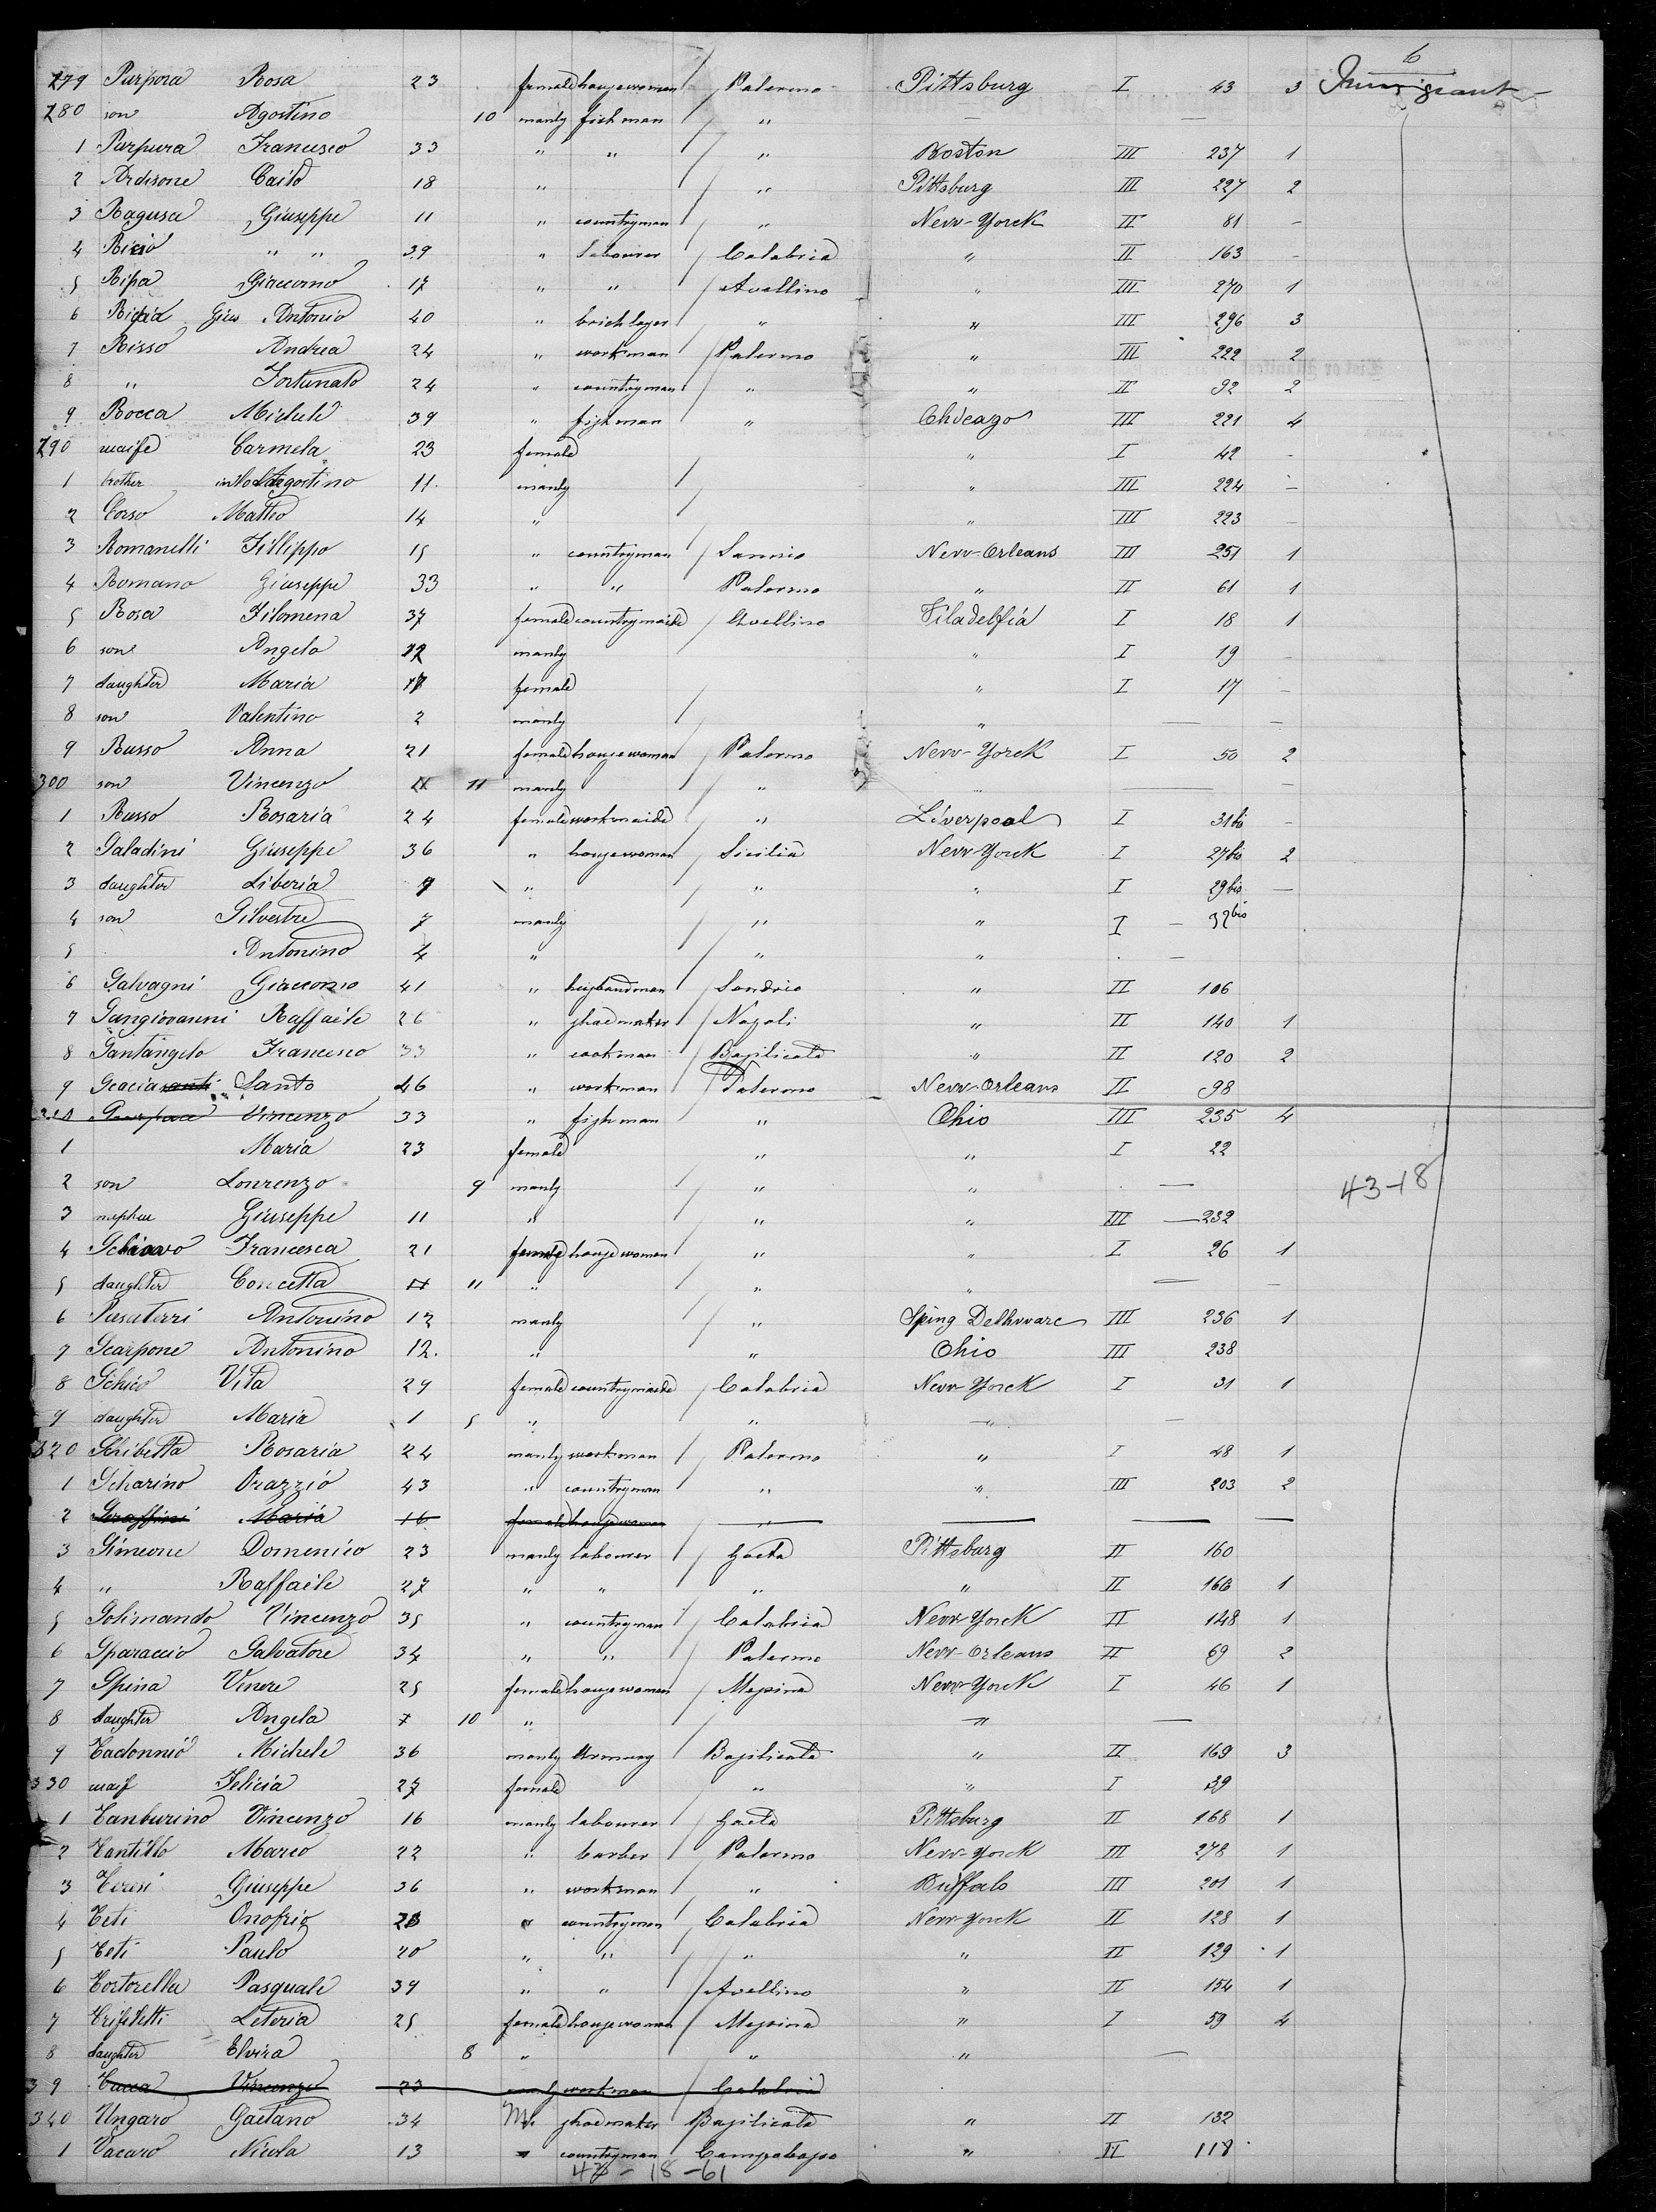 6
279 Purpora Rosa 23 female houjewoman Palermo Pittsburg I 43 3 Immigrant
280 son Agostino 10 manly fishman " — —
1 Purpura Francesco 33 " " " Boston III 237 1
2 Ardisone Caito 18 " " Pittsburg III 227 2
3 Ragusa Giuseppe 11 " countryman " Nevv-Yorck II 81 -
4 " " 39 " Labourer Calabria " II 163 -
5 Ripa Giacomo 17 " " Avellino " III 270 1
6 Gius Antonio 40 " brichlayer " " III 296 3
7 Risso Andrea 24 " workman Palermo " III 222 2
8 " Fortunato 24 " countryman " " II 92 2
9 Rocca Michele 39 " fijhman " Chicago III 221 4
290 waife Carmela 23 female " I 42 -
1 brother Agostino 11 manly " III 224 -
2 Corso Matteo 14 " " III 223 -
3 Romanelli Fillippo 15 " countryman Sannio Nevv-Orleans III 251 1
4 Romano Giuseppe 33 " " Palermo " II 61 1
5 Rosa Filomena 37 female countrymaide Avellino Filadelfia I 18 1
6 son Angelo 12 manly " I 19 -
7 daughter Maria 17 female " I 17 -
8 son Valentino 2 manly " — —
9 Russo Anna 21 female houjewoman Palermo Nevv-Yorck I 50 2
300 son Vincenzo 11 manly " " — —
1 Russo Rosaria 24 female workmaide " Liverpool I 31 bis -
2 Saladini Giuseppe 36 " houjewoman Sicilia Nevv-Yorck I 27 bis 2
3 daughter Liberia 9 " " " I 29 bis —
4 son Silvestre 7 manly " " I - 32 bis
5 Antonino 4 " " " -
6 Salvagni Giacomo 41 " hujbandman Sondrio " II 106
7 Sangiovanni Raffaele 26 " jhoemaker Napoli " II 140 1
8 Santangelo Francesco 33 " cookman Bajilicata " II 120 2
9 Santo 46 " workman Palermo Nevv-Orleans II 98
310 Vincenzo 33 " fijhman " Ohio III 235 4
1 Maria 23 female " " I 22
2 son Lourenzo 9 manly " " —
43-18
3 nephew Giuseppe 11 " " " III — 232
4 Schiavo Francesca 21 female houjewoman " " I 26 1
5 daughter Concetta 11 " " " — —
6 Antonino 12 manly " Sping Delhware III 236 1
7 Scarpone Antonino 12. " " Ohio III 238
8 Schico Vita 29 female countrymaide Calabria Nevv-Yorck I 31 1
9 daughter Maria 1 5 " " " —
320 Schibetta Rosaria 24 manly workman Palermo " I 48 1
1 Scharino Orazzio 43 " countryman " " III 203 2
2 Maria 16 female houjewoman " — — —
3 Simeone Domenico 23 manly labourer Gaeta Pittsburg II 160
4 " Raffaele 27 " " " " II 166 1
5 Solimando Vincenzo 35 " countryman Calabria Nevv-Yorck II 148 1
6 Sparaccio Salvatore 34 " " Palermo Nevv-Orleans II 69 2
7 Spina Vinere 25 female houjewoman Mejsina Nevv-Yorck I 46 1
8 daughter Angela 10 " " —
9 Tadonnio Michele 36 manly Bajilicata " II 169 3
330 waif Felicia 27 female " " I 39
1 Tanburino Vincenzo 16 manly labourer Gaeta Pittsburg II 168 1
2 Tantillo Marco 22 " barber Palermo Nevv-Yorck III 278 1
3 Teresi Giuseppe 36 " workman " Buffalo III 201 1
4 Teti Onofrio 28 " countryman Calabria Nevv-Yorck II 128 1
5 Teti Paulo 20 " " " " II 129 1
6 Tortorella Pasquale 39 " " Avellino " II 154 1
7 Trifiletti Leteria 25 female houjewoman Mejsina " I 59 4
8 daughter Elvira 8 " " " —
39 Tucca Vincenzo 23 manly workman Calabria
340 Ungaro Gaetano 34 jhoemaker Bajilicata " II 132
1 Vacaro Nicola 13 " countryman Campobajso " II 118
43-18-61